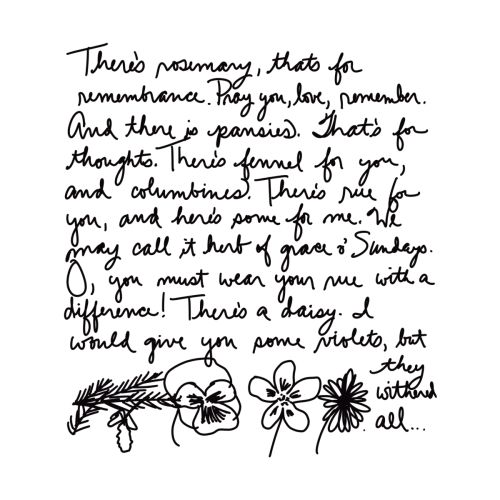 There's rosemary, thats for
remembrance. Pray you, love, remember.
And there is pansies. That's for
thoughts. There's fennel for you,
and columbines. There's rue for
you, and here's some for me. We
may call it herb of grace o' Sundays.
O, you must wear your rue with a
difference! There's a daisy. I
would give you some violets, but
they
withered
all...